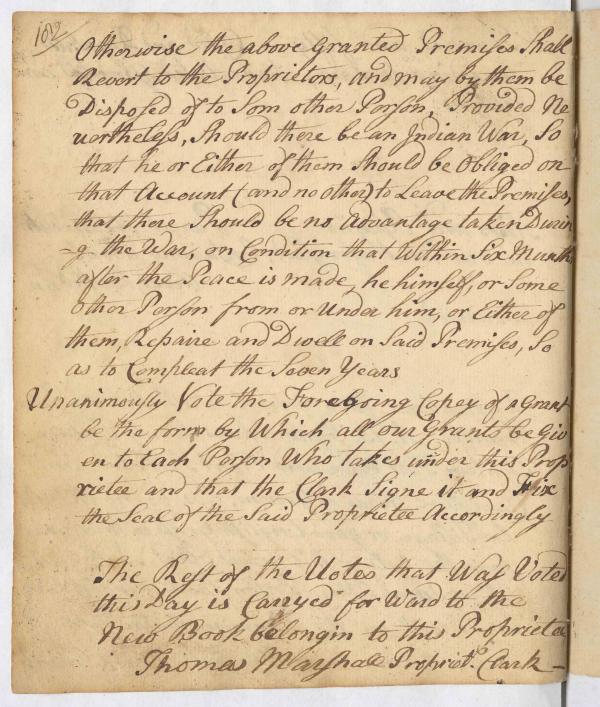 102
Otherwise the above Granted Premises Shall
Revert to the Proprietors, and may by them be
Disposed of to Som other Person, Provided Ne
vertheless, Should there be an Indian War, So
that he or Either of them Should be Obliged on
that Account (and no other) to Leave the Premises,
that there Should be no Advantage taken Durin
-g the War, on Condition that Within Six Munth
after the Peace is made, he himself, or Some
other Person from or Under him, or Either of
them, Repaire and Dwell on Said Premises, So
as to Compleat the Seven Years
Unanimously Vote the Foregoing Copey of a Grant
be the form by Which all our Grants be Giv
en to Each Person Who takes under this Prop
rietee and that the Clark Signe it and Fix
the Seal of the Said Proprietee Accordingly
The Rest of the Votes that Was Voted
this Day is Carryed for Ward to the
New Book belongin to this Proprietee
Thomas Marshall Propriet. Clark —